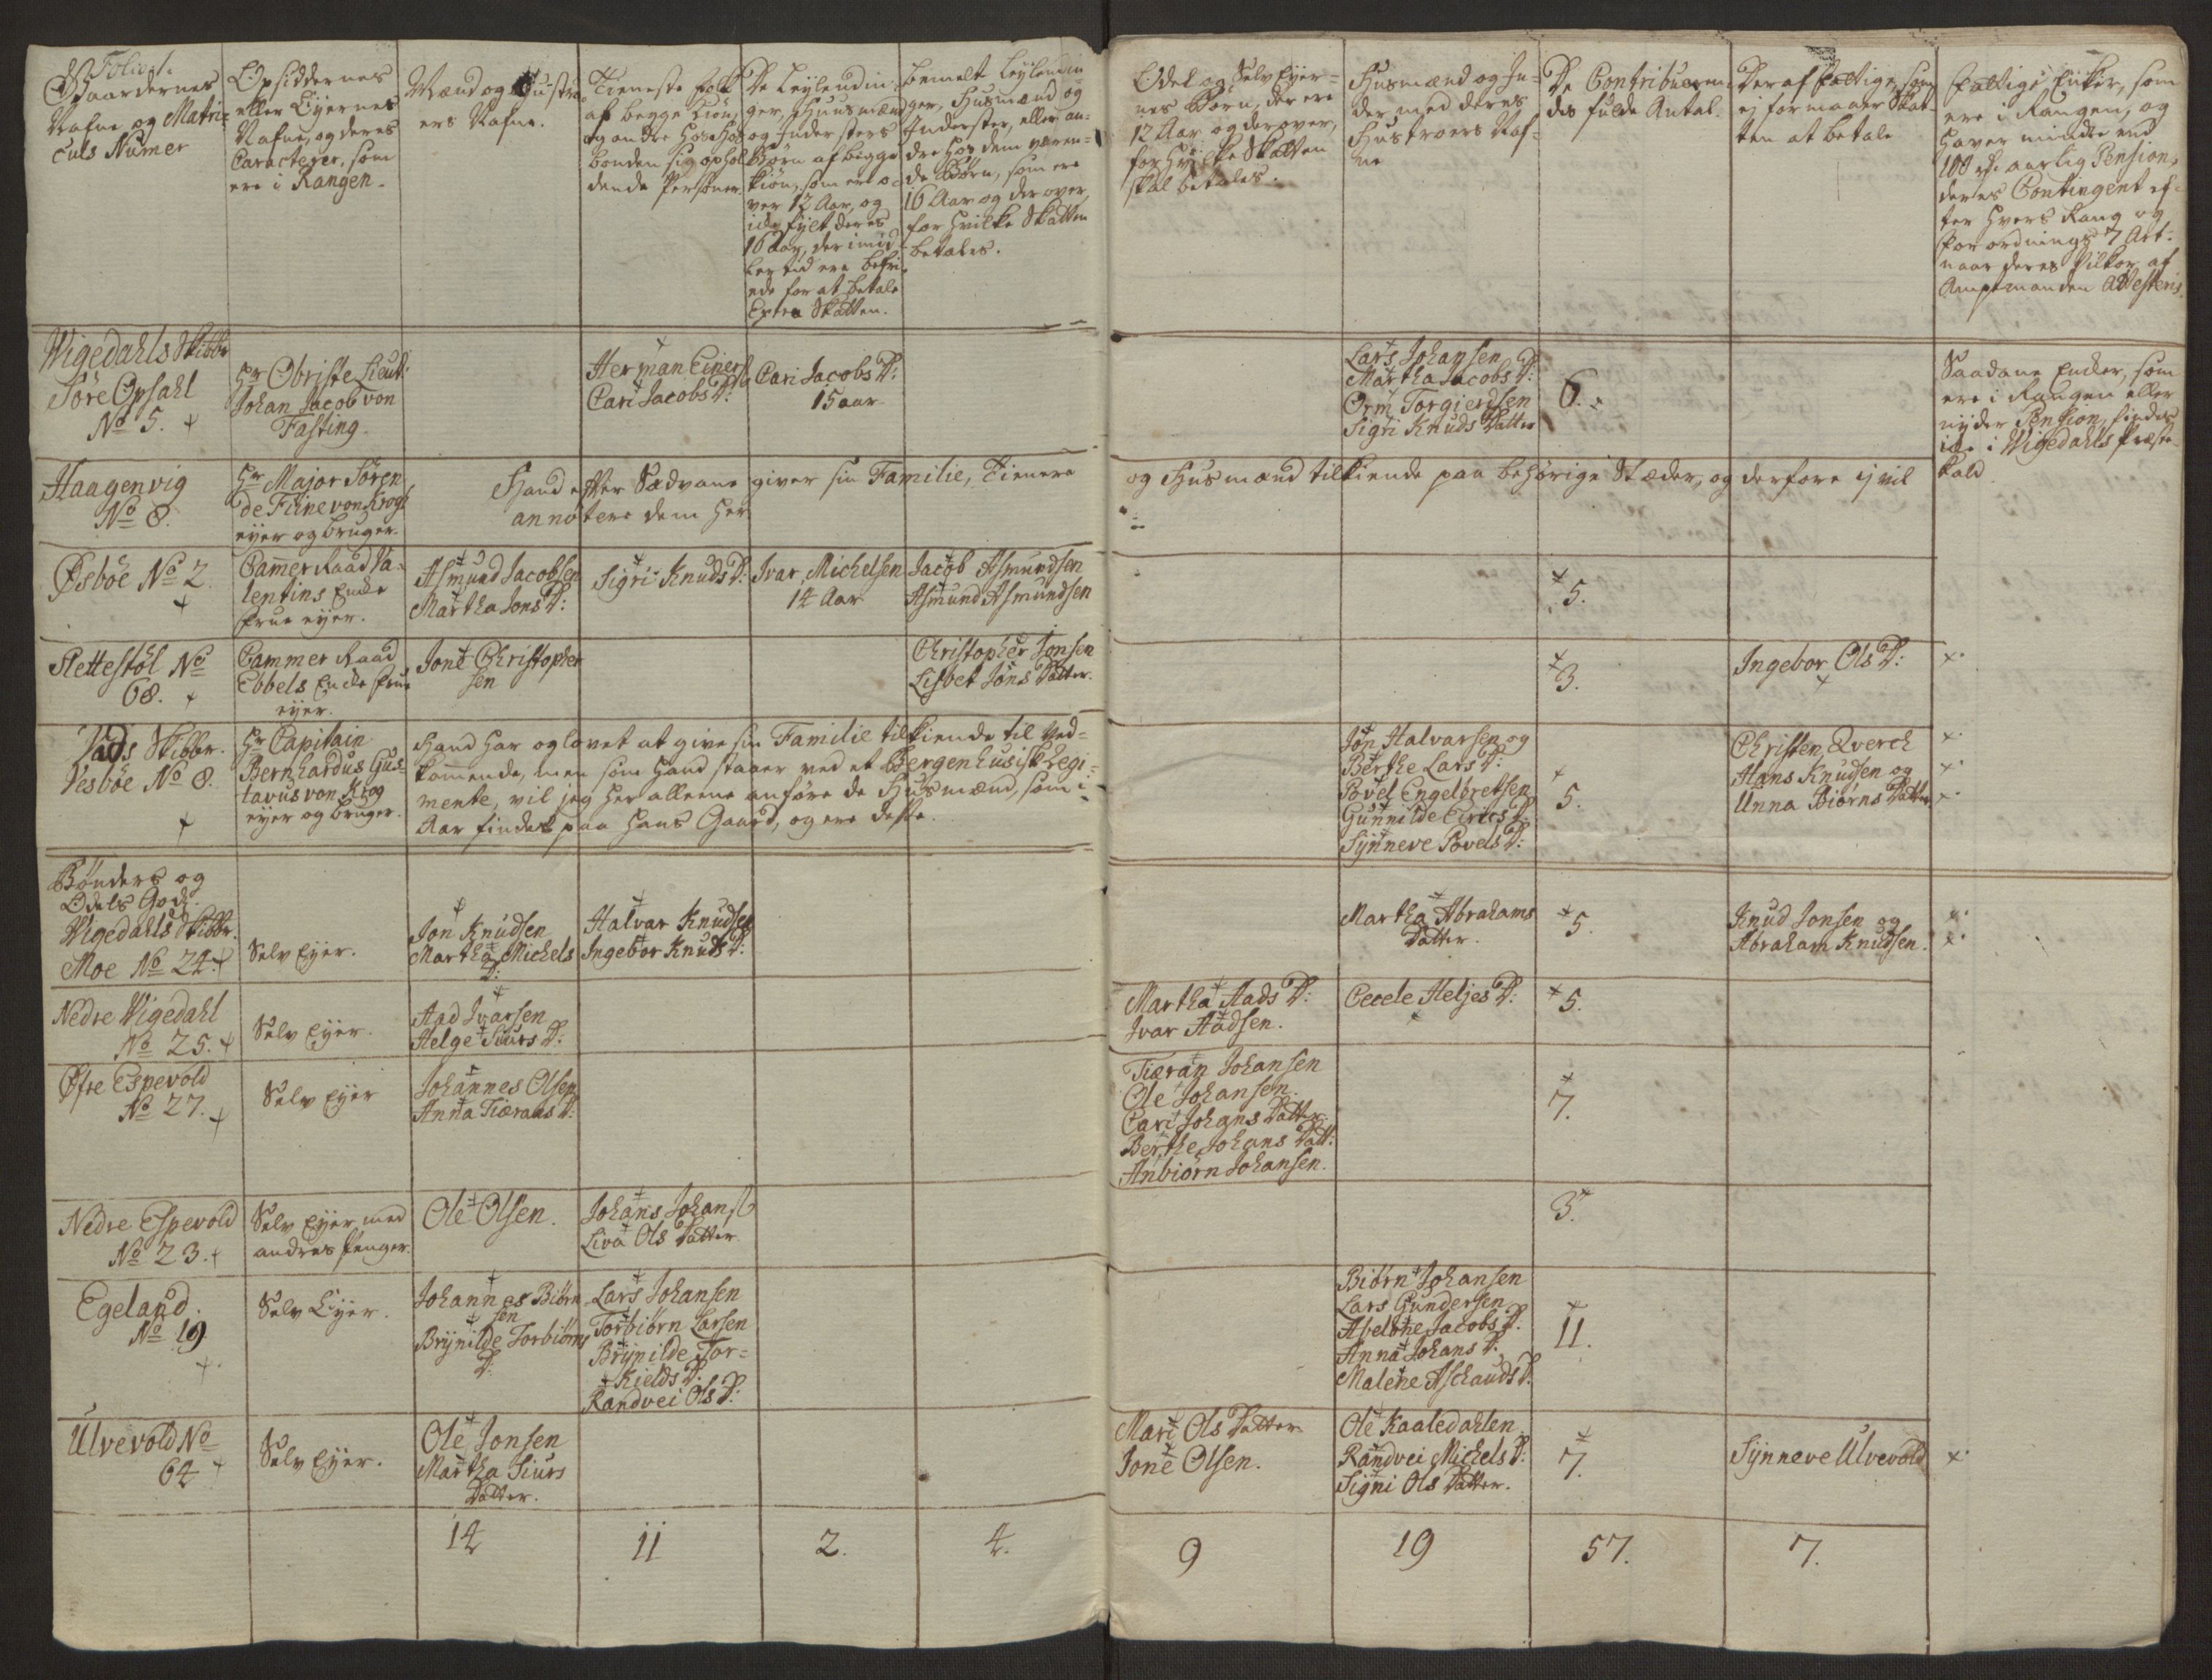 Folio 1.
Gaardernes
Nafne og Matri=
culs Numer
Opsiddernes
eller Eÿernes
Nafne, og deres
Caracterer, som
ere i Rangen.
Mænd og Hustru
ers Nafne.
Tieneste folk
af begge Kiön,
og andre hos Hos
bonden sig ophol
dende Personer.
De Leÿlendin=
ger, Huusmænd
og Indersters
Börn af begge
Kiön, som ere o=
ver 12 Aar, og
icke fÿlt deres
16 Aar, der imid
lertid ere befri
ede for at betale
Extra Skatten.
bemelt Leÿlendin=
ger, Husmænd og
Inderster, eller an=
dre hos dem væren=
de Börn, som ere
16 Aar og derover
for hvilke Skatten
betales.
Odel og Selv Eÿer=
nes Börn, der ere
12 Aar og derover,
for hvilke Skatten
skal betales.
Husmænd og In=
der med deres
Hustroers Naf=
ne
De Contribueren=
des fulde Antal.
Der af fattige, som
ej formaaer Skat=
ten at betale
Fattige Encker, som
ere i Rangen, og
haver mindre end
100 rd. aarlig Pension,
deres Contingent ef=
ter hvers Rang og
forordnings 7 Art:
naar deres Vilkor af
Amptmanden Attesteris.
Wigedahls Skibbr
Söre Opsahl
No 5.
Hr Obriste Lieut:
Johan Jacob von
Fasting.
Herman Einers
Cari Jacobs D:
Cari Jacobs D:
15 aar
Lars Johansen
Martha Jacobs D:
Orm Torgiersen
Sigri Knuds Datter
6.
Saadane Encker, som
ere i Rangen eller
nÿder Pention, findes
icke i Wigedahls Præste
kald.
Haagenvig
No 8.
Hr Major Sören
de Fiine von Krog
eÿer og bruger.
Hand efter Sædvane giver sin Familie, Tienere
og Husmænd tilkiende paa behörige Stæder, og derfore ej vil
annotere dem her
Øsböe No 2.
Camer Raad Va=
lentins Encke
Frue eÿer.
Asmund Jacobsen
Martha Jons D:
Sigri Knuds D:
Ivar Michelsen
14 Aar
Jacob Asmundsen
Asmund Asmundsen
5.
Slettestöl No
68.
Cammer Raad
Ebbels Encke Frue
eÿer.
Jone Christopher
sen
Christopher Jonsen
Lisbet Jons Datter.
3.
Ingebor Ols D:
Vads Skibbr.
Vesböe No 8.
Hr Capitain
Bernhardus Gus=
tavus von Krog
eÿer og bruger.
Hand har og lovet at give sin Familie tilkiende til Ved=
kommende, men som hand staaer ved et Bergenhusisk Regi=
mente, vil jeg her alleene anföre de Husmænd, som i
Aar findes paa hans Gaard, og ere deste.
Jon Halvarsen og
Berthe Lars D:
Povel Engelbretsen
Gunnilde Eircs D:
Sÿnneve Povels D:
5.
Christen Qverck
Hans Knudsen og
Unna Biörns Datter
Bönders og
Odels Gods.
Wigedahls Skibbr.
Moe No 24.
Selv Eÿer.
Jon Knudsen
Martha Michels
D:
Halvar Knudsen
Ingebor Knuds D:
Martha Abrahams
Datter.
5.
Knud Jonsen og
Abraham Knudsen.
Nedre Wigedahl
No 25.
Selv Eÿer.
Aad Ivarsen
Helge Siurs D:
Martha Aads D:
Ivar Aadsen.
Cecele Heljes D:
5.
Øfre Espevold
No 27.
Selv Eÿer
Johannes Olsen
Anna Tiærans D:
Tiæran Johansen
Ole Johansen.
Cari Johans Datter
Berthe Johans Datt:
Anbiörn Johansen.
7.
Nedre Espevold
No 23.
Selv Eÿer med
andres Penger.
Ole Olsen.
Johans Johans
Liva Ols Datter.
3.
Egeland.
No 19
Selv Eÿer.
Johannes Biörn
sen
Brÿnilde Torbiörns
D:
Lars Johansen
Torbiörn Larsen
Brÿnilde Tor=
kields D:
Randvei Ols D:
Biörn Johansen
Lars Gundersen
Abelone Jacobs D.
Anna Johans D.
Malene Aschauds D.
11.
Ulvevold No
64
Selv Eÿer.
Ole Jonsen
Martha Siurs
Datter.
Mari Ols Datter
Jone Olsen.
Ole Kaaledahlen
Randvei Michels D:
Signi Ols Datter.
7.
Sÿnneve Ulvevold
14
11
2.
4.
9
19
57.
7.